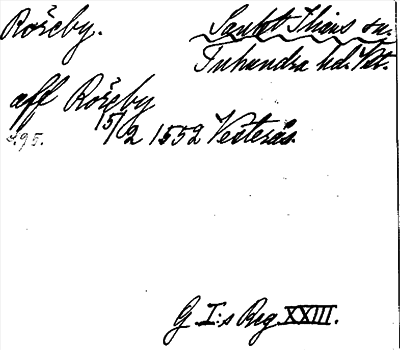 Roseby.
Sankt Ilians sn.
Tuhundra hd. Vstm.
aff Roseby
15/2 1552 Vesterås.
s. 95.
G I:s Reg XXIII.